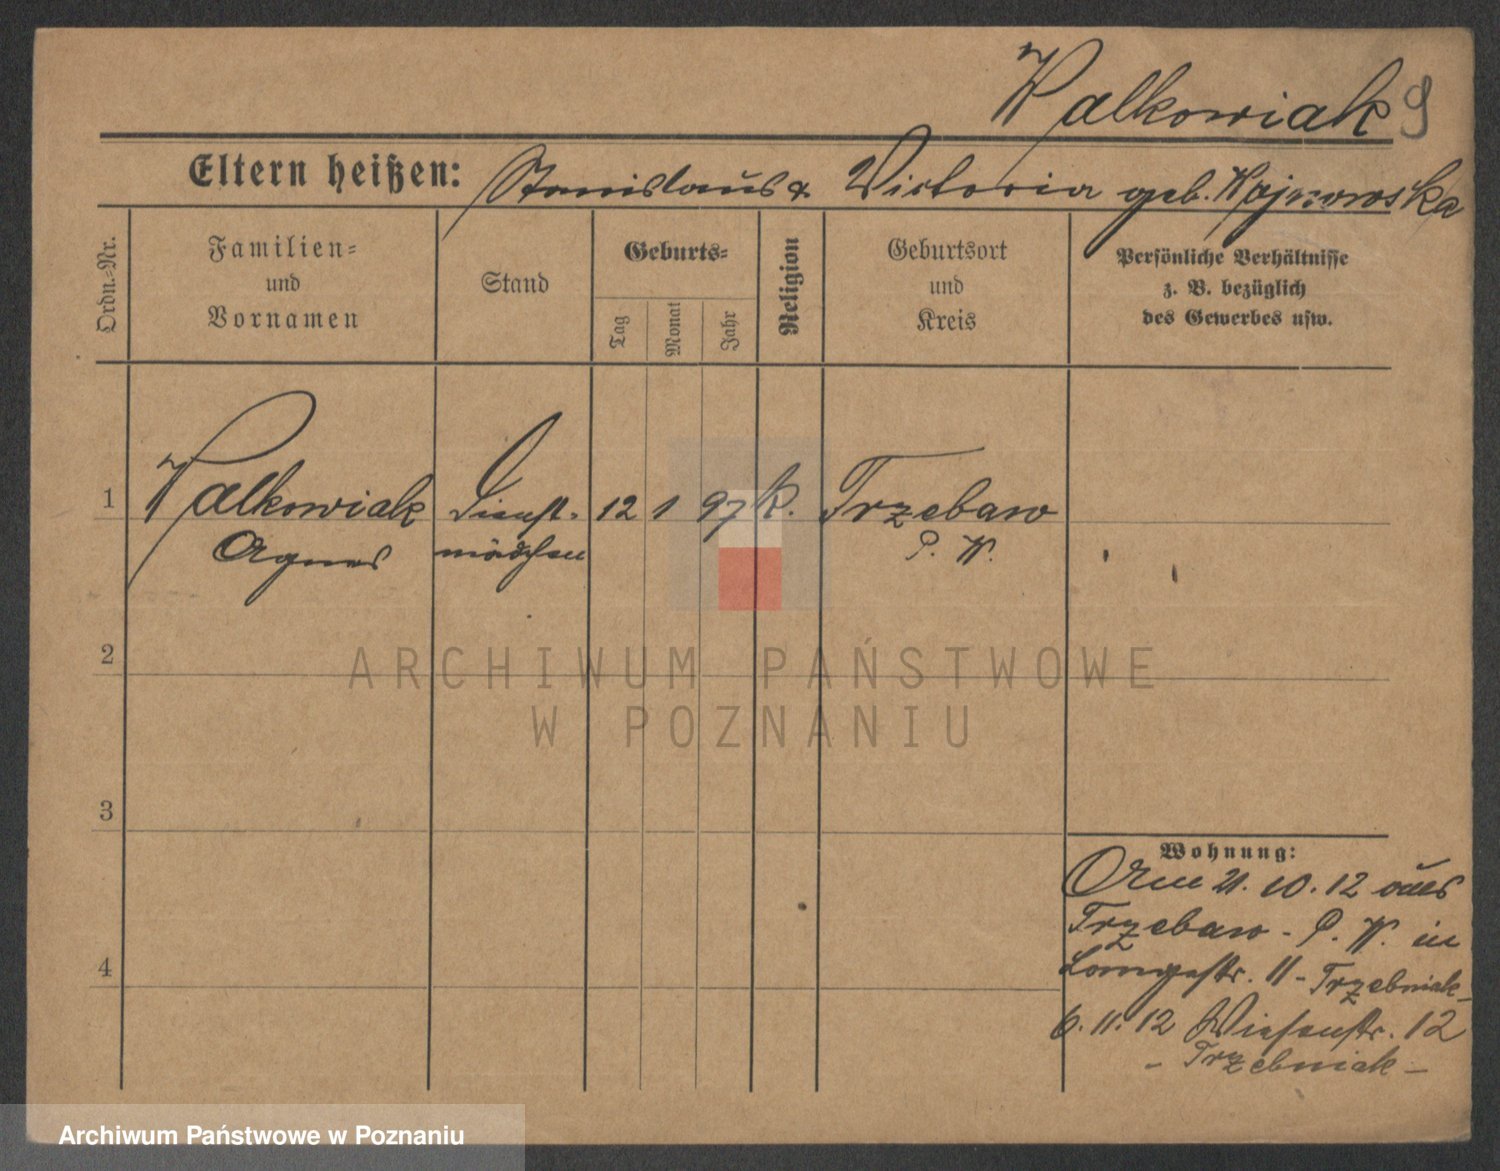 Walkowiak 9
Eltern heißen: Stanislaus & Victoria geb. Kajnowska
Ordn.-Nr.
Familien-
und
Vornamen
Stand
Geburts-
Tag
Monat
Jahr
Religion
Geburtsort
und
Kreis
Persönliche Verhältnisse
z. B. bezüglich
des Gewerbes usw.
1 Walkowiak Dienst- 12 1 97 k. Trzebaw
Agnes mädchen P. W.
2
3
4
Wohnung:
Am 21. 10. 12 aus
Trzebaw - P. W. in
Langestr. 11 - Trzebniak -
6. 11. 12 Wiesenstr. 12
- Trzebniak -
ARCHIWUM PAŃSTWOWE
W POZNANIU
Archiwum Państwowe w Poznaniu